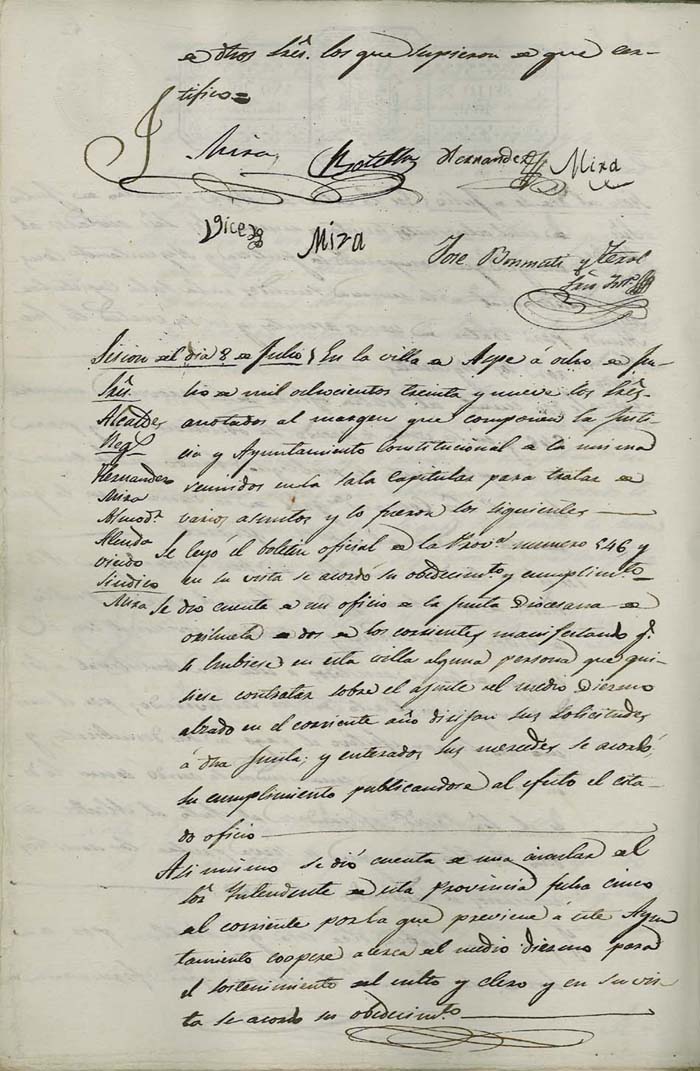 de dhos Srês. los que supieron de que cer-
tifico =
Mira
Botella
Hernandez
Mira
Mira
Jose Bonmati y Terol
Srîo Intº
Sesion del dia 8 de Julio } En la villa de Aspe á ocho de Ju-
Srês.
lio de mil ochocientos treinta y nueve los Srês.
Alcaldes
anotados al margen que componen la Justi-
Reg.s
cia y Ayuntamiento Constitucional de la misma
Hernandez
reunidos en la sala capitular para tratar de
Mira
varios asuntos y lo fueron los siguientes
Almodr
Alenda
Se leyó el boletin oficial de la Provª numero 546 y
en su vista se acordó su obedecimto y cumplimto
Sindico
Mira
Se dio cuenta de un oficio de la Junta Diocesana de
orihuela de dos de los corrientes manifestando q.e
si hubiese en esta villa alguna persona que qui-
siese contratar sobre el ajuste del medio Diezmo
alzado en el corriente año dirijan sus solicitudes
á dha Junta; y enterados sus mercedes se acordó,
su cumplimiento publicandose al efecto el cita-
do oficio
Asi mismo se dió cuenta de una circular del
Sor Yntendente de esta Provincia fecha cinco
del corriente por la que previene á este Ayun
tamiento coopere acerca del medio diezmo para
el sostenimiento del culto y clero y en su vis-
ta se acordo su obedecimto